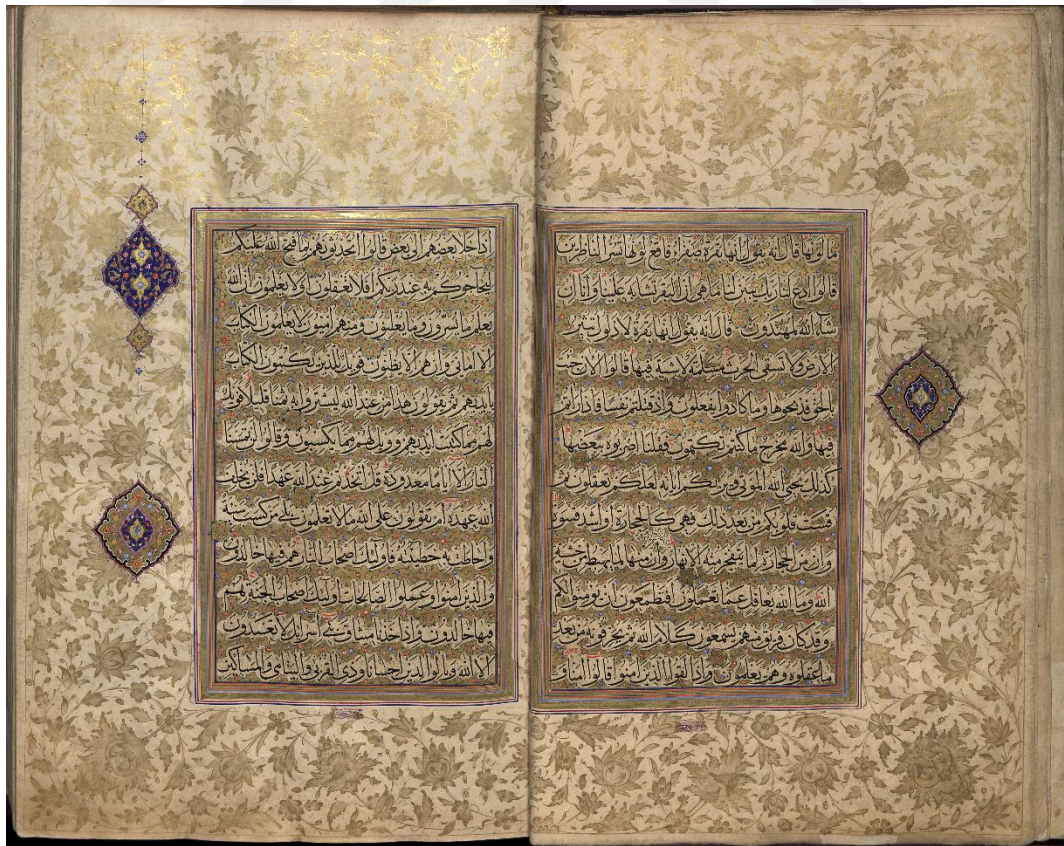 ما لونها قال انه يقول انها بقرة صفراء فاقع لونها تسر الناظرين
قالوا ادع لنا ربك يبين لنا ما هي ان البقر تشابه علينا وانا ان
شآء الله لمهتدون قال انه يقول انها بقرة لا ذلول تثير
الارض ولا تسقي الحرث مسلمة لا شية فيها قالوا الان جئت
بالحق فذبحوها وما كادوا يفعلون واذ قتلتم نفسا فاداراتم
فيها والله مخرج ما كنتم تكتمون فقلنا اضربوه ببعضها
كذلك يحيي الله الموتى ويريكم اياته لعلكم تعقلون ثم
قست قلوبكم من بعد ذلك فهي كالحجارة او اشد قسوة
وان من الحجارة لما يتفجر منه الانهار وان منها لما يهبط من خشية
الله وما الله بغافل عما تعملون افتطمعون ان يومنوا لكم
وقد كان فريق منهم يسمعون كلام الله ثم يحرفونه من بعد
ما عقلوه وهم يعلمون واذا لقوا الذين امنوا قالوا امنا و
اذا خلا بعضهم الى بعض قالوا اتحدثونهم بما فتح الله عليكم
ليحاجوكم به عند ربكم افلا تعقلون اولا يعلمون ان الله
يعلم ما يسرون وما يعلنون ومنهم اميون لا يعلمون الكتاب
الا اماني وان هم الا يظنون فويل للذين يكتبون الكتاب
بايديهم ثم يقولون هذا من عند الله ليشتروا به ثمنا قليلا فويل
لهم مما كتبت ايديهم وويل لهم مما يكسبون وقالوا لن تمسنا
النار الا اياما معدودة قل اتخذتم عند الله عهدا فلن يخلف
الله عهده ام تقولون على الله ما لا تعلمون بلى من كسب سيئة
واحاطت به خطيئته فاولئك اصحاب النار هم فيها خالدون
والذين امنوا وعملوا الصالحات اولئك اصحاب الجنة هم
فيها خالدون واذ اخذنا ميثاق بني اسرائيل لا تعبدون
الا الله وبالوالدين احسانا وذي القربى واليتامى والمساكين